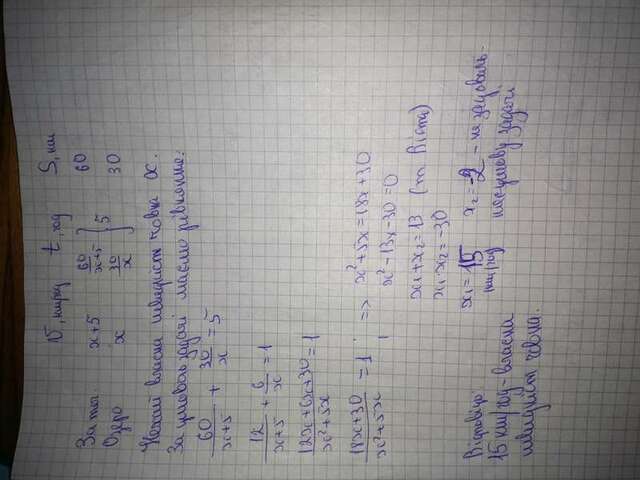 v, км/год t, год S, км
За теч. x+5 60/x+5 } 5 60
Озеро x 30/x 30
Нехай власна швидкість човна x.
За умовою задачі маємо рівняння:
60/x+5 + 30/x = 5
12/x+5 + 6/x = 1
12x+6x+30/x²+5x = 1
18x+30/x²+5x = 1 ; => x²+5x=18x+30
x²-13x-30=0
x₁+x₂=13 (т Вієта)
x₁·x₂=-30
x₁=15 x₂=-2 - не задоволь-
(км/год) няє умову задачі
Відповідь:
15 км/год - власна
швидкість човна.